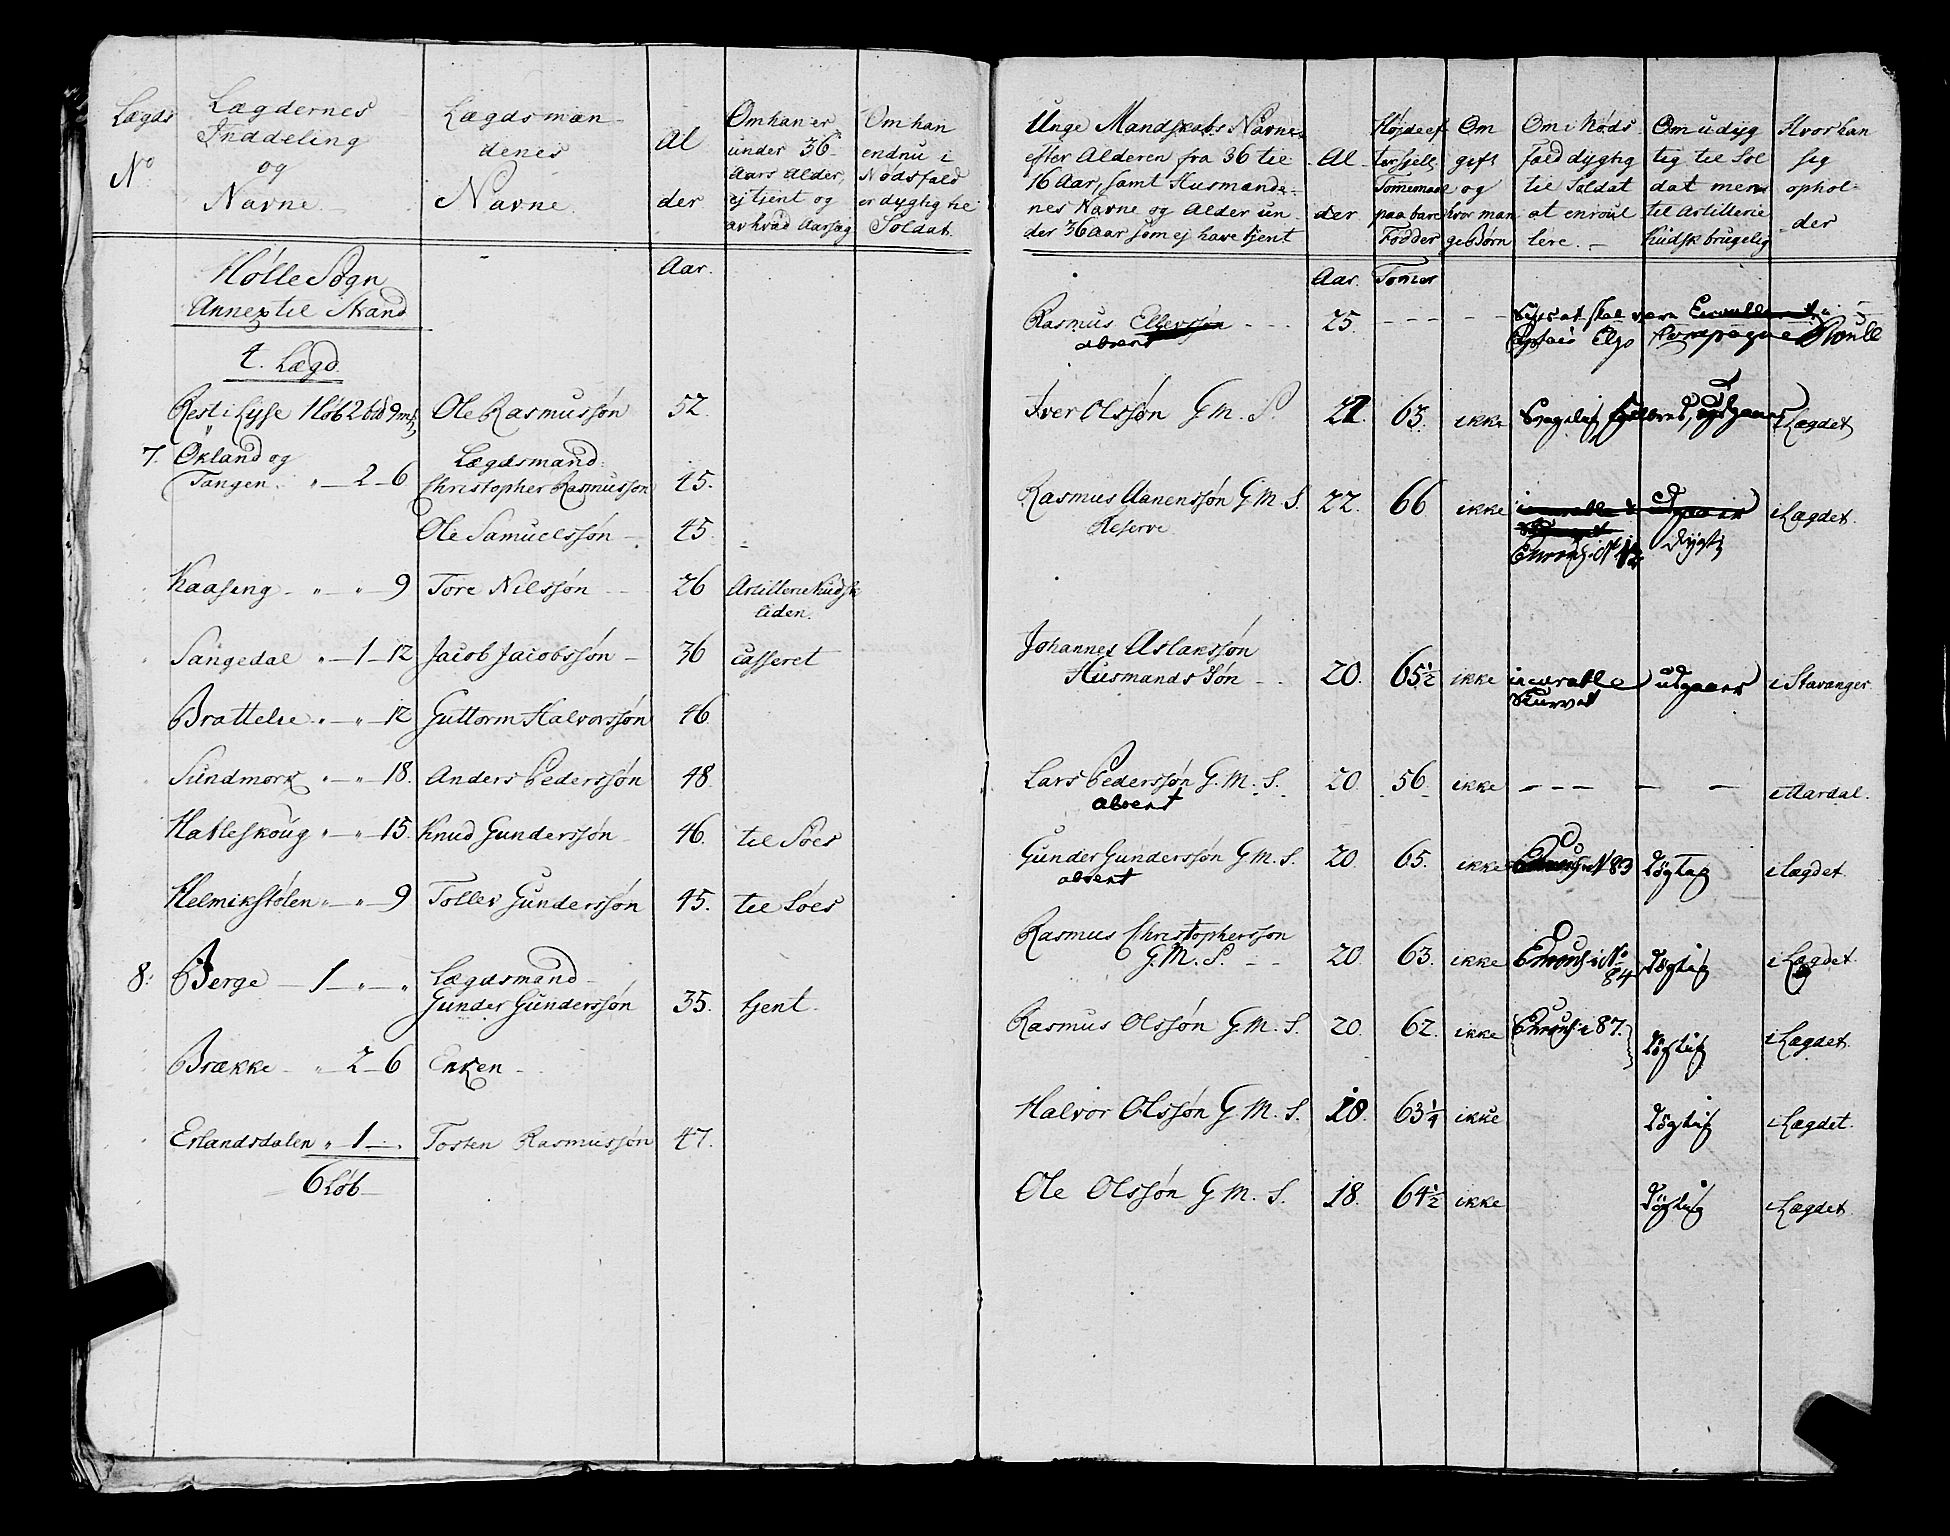 Lægds
No
Lægdernes
Inddeling
og
Navne.
Lægdsmæn-
denes
Navne.
Al
der
Om han er
under 36
Aars Alder,
ej tjent og
av hvad Aarsag
Om han
endnu i
Nødsfald
er dygtig til
Soldat.
Hølle Sogn
Annex til Strand
Aar.
4. Lægd.
Rest i Lyse 1 Løb 2 bd 9 mk Ole Rasmussøn 52.
7. Økland og
Tangen. " — 2 — 6
Lægdsmand:
Christopher Rasmussøn 45.
Ole Samuelssøn — 45.
Kaaseng — " — " — 9 Tore Nilssøn — 26 Artillerie Kudsk
liden.
Sangedal " — 1 — 12 Jacob Jacobssøn — 36 casseret
Brattelie " — " — 12 Guttorm Halvorssøn 46
Sundmork " — " — 18. Anders Pederssøn 48
Hatleskoug " — " — 15. Knud Gunderssøn 46. til Søes
Helmikstølen " — " — 9 Tollev Gunderssøn 45. til Søes
8. Berge — 1 — " — "
Lægdsmand
Gunder Gunderssøn 35. tjent.
Brække — " — 2 — 6 Enken —
Erlandsdalen " — 1 — . Tosten Rasmussøn 47.
6 Løb
Unge Mandskabs Navne
efter Alderen fra 36 til
16 Aar, samt Husmænde-
nes Navne og Alder un-
der 36 Aar som ej have tjent
Al-
der.
Højde ef
ter sjell:
Tommemaal
paa bare
Fødder
Om
gift
og
hvor man
ge Børn
Om i Nøds
fald dygtig
til Soldat
at enroul
lere. —
Om udyg
tig til Sol
dat men
til Artillerie
Kudsk brugelig
Hvor han
sig
ophol-
der
Aar. Tomer
Rasmus Ellefssøn - - - 25. - - - - -
absent
skal være
Compagnie
Iver Olssøn G. M. S. 21 63. ikke i Lægdet
Rasmus Aanenssøn G. M. S. 22. 66 ikke udgaaer i Lægdet.
Reserve
Johannes Aslakssøn
Husmands Søn - - 20. 65½ ikke incurable udgaaer i Stavanger
Skurvet
Lars Pederssøn G. M. S. 20. 56. ikke - - - - — i Aardal.
absent
Gunder Gunderssøn G. M. S. 20. 65. ikke N 83 Dygtig i Lægdet
absent
Rasmus Christopherssøn
G. M. S. - - 20. 63. ikke Enroul: i No 84 Dygtig i Lægdet.
Rasmus Olssøn G. M. S. 20. 62. ikke Enroul: i 87. Dygtig i Lægdet.
Halvor Olssøn G. M. S. 18. 63¼ ikke Dygtig i Lægdet.
Ole Olssøn G. M. S. 18. 64½ ikke Dygtig i Lægdet.